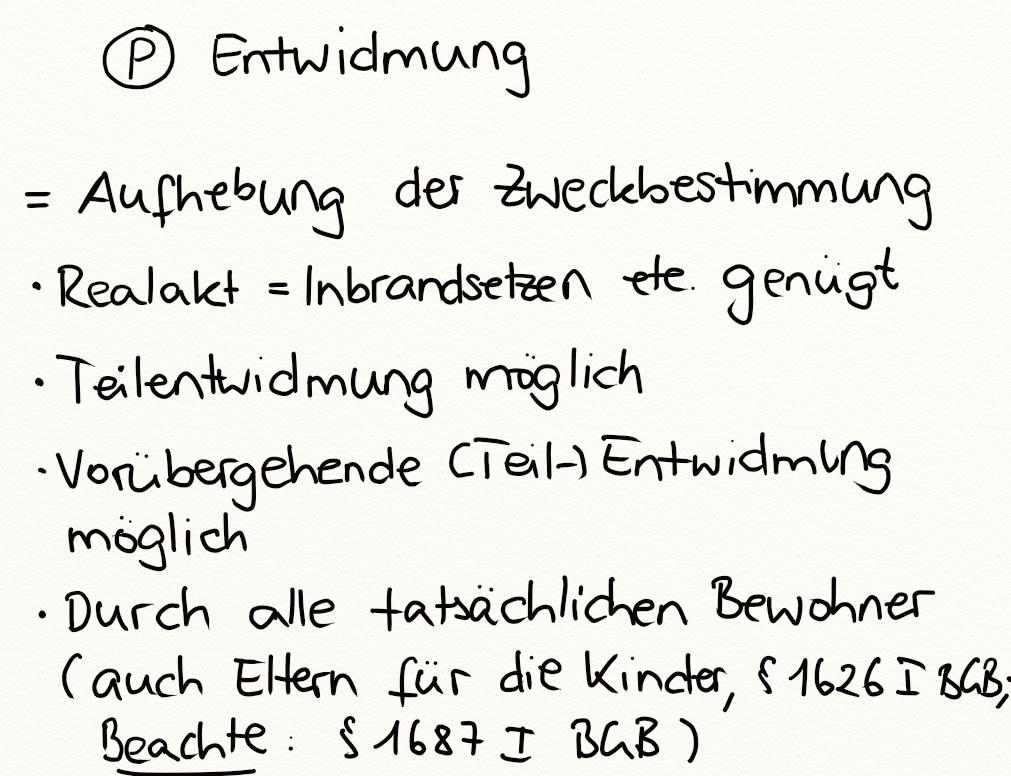 Ⓟ Entwidmung
= Aufhebung der Zweckbestimmung
· Realakt = Inbrandsetzen etc. genügt
· Teilentwidmung möglich
· Vorübergehende (Teil-) Entwidmung
möglich
· Durch alle tatsächlichen Bewohner
(auch Eltern für die Kinder, § 1626 I BGB;
Beachte: § 1687 I BGB)